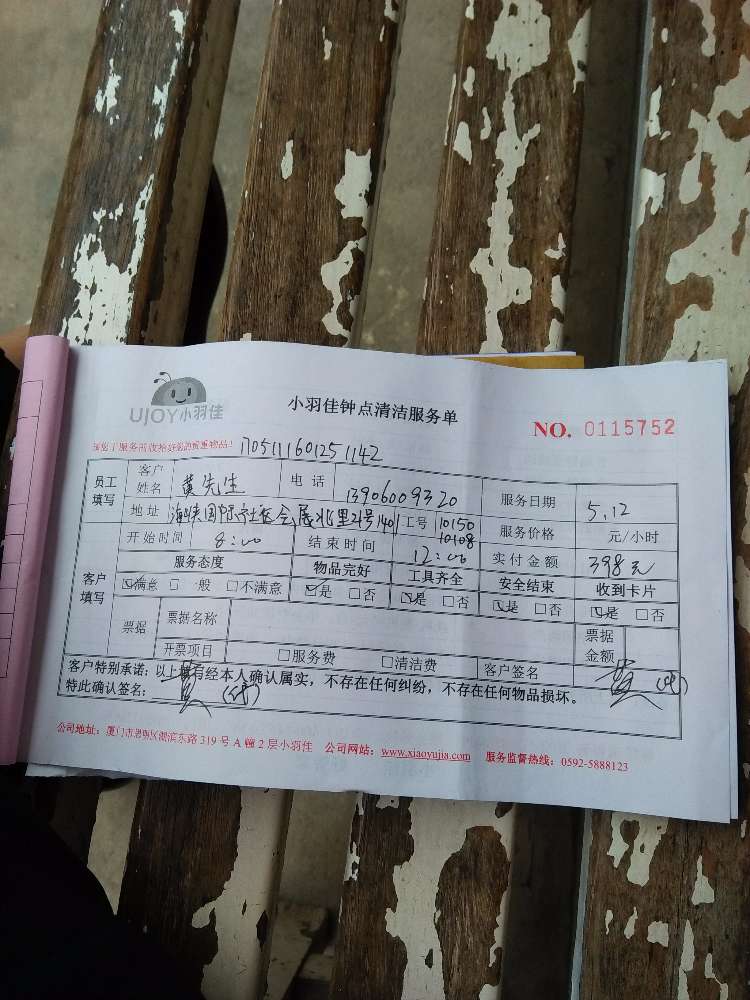 UJOY小羽佳
小羽佳钟点清洁服务单
NO. 0115752
170511160125 1142
员工填写 客户姓名 黄先生 电话 13906009320 服务日期 5.12
地址 海峡国际社区会展北里21号1401 工号 10150 10108 服务价格 元/小时
开始时间 8:00 结束时间 12:00 实付金额 398元
客户填写 服务态度 物品完好 工具齐全 安全结束 收到卡片
☑满意 □一般 □不满意 ☑是 □否 ☑是 □否 ☑是 □否 ☑是 □否
票据 票据名称 票据金额
开票项目 □服务费 □清洁费 客户签名 黄(代)
客户特别承诺：以上所有经本人确认属实，不存在任何纠纷，不存在任何物品损坏。
特此确认签名： 黄(代)
公司地址：厦门市思明区湖滨东路 319 号 A 幢 2 层小羽佳 公司网站：www.xiaoyujia.com 服务监督热线：0592-5888123